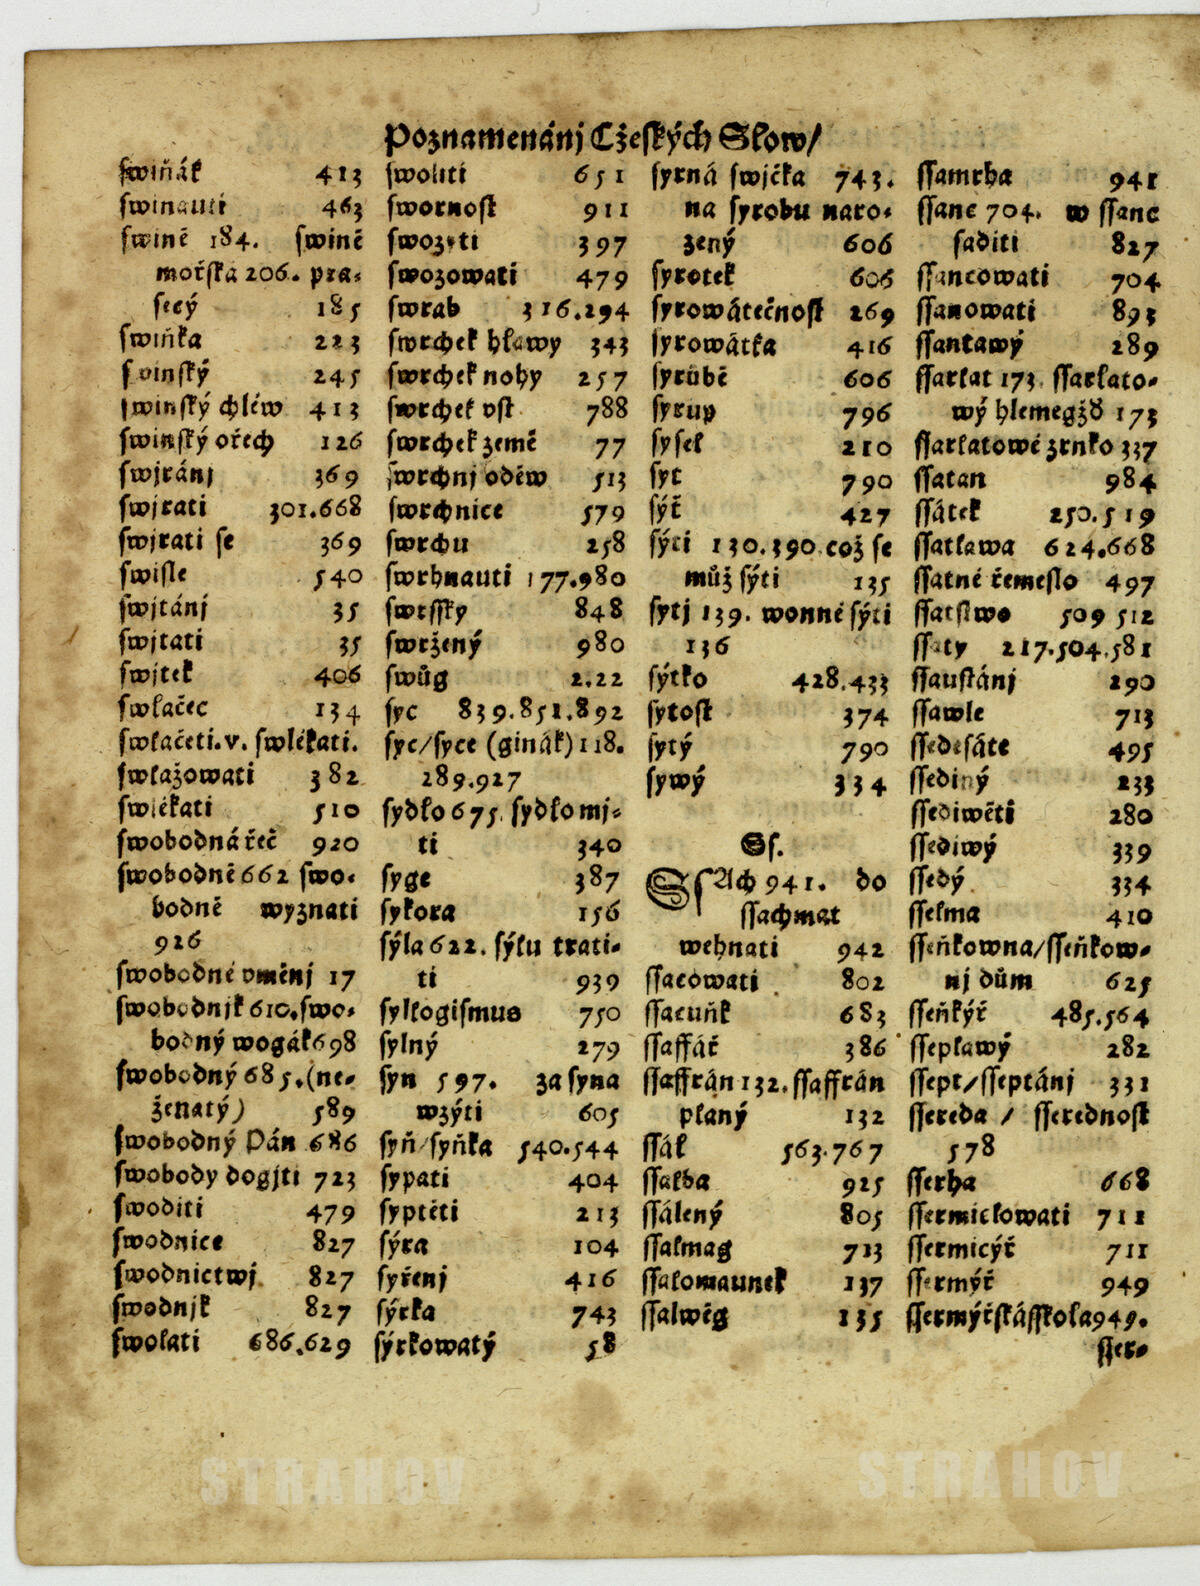 Poznamenánj Cžeſkých Slow/
ſwiňák 413
ſwinauti 463
ſwině 184. ſwině
mořſka 206. pra-
ſecý 185
ſwiňka 223
ſwinſký 245
ſwinſký chlěw 413
ſwinſký ořech 126
ſwjránj 369
ſwjrati 301.668
ſwjrati ſe 369
ſwiſle 540
ſwjtánj 35
ſwjtati 35
ſwjtek 406
ſwlačec 134
ſwlačeti.v. ſwlékati.
ſwlažowati 382
ſwlékati 510
ſwobodná řeč 920
ſwobodně 662 ſwo-
bodně wyznati
926
ſwobodné vměnj 17
ſwobodnjk 610.ſwo-
bodný wogák 698
ſwobodný 685.(ne-
ženatý) 589
ſwobodný Pán 686
ſwobody dogjti 723
ſwoditi 479
ſwodnice 827
ſwodnictwj 827
ſwodnjk 827
ſwolati 686.629
ſwoliti 651
ſwornoſt 911
ſwozyti 397
ſwozowati 479
ſwrab 316.294
ſwrchek hlawy 343
ſwrchek nohy 257
ſwrchek vſt 788
ſwrchek země 77
ſwrchnj oděw 513
ſwrchnice 579
ſwrchu 258
ſwrhnauti 177.980
ſwrſſky 848
ſwržený 980
ſwůg 2.22
ſyc 839.851.892
ſyc/ſyce (ginák) 118.
289.927
ſydlo 675. ſydlo mj-
ti 340
ſyge 387
ſykora 156
ſýla 622. ſýlu trati-
ti 939
ſyllogiſmus 750
ſylný 279
ſyn 597. za ſyna
wzýti 605
ſyň/ſyňka 540.544
ſypati 404
ſyptěti 213
ſýra 104
ſyřenj 416
ſýrka 743
ſýrkowatý 58
ſyrná ſwjčka 743.
na ſyrobu naro-
zený 606
ſyrotek 606
ſyrowátečnoſt 269
ſyrowátka 416
ſyrůbě 606
ſyrup 796
ſyſel 210
ſyt 790
ſýř 427
ſýti 130.390 což ſe
můž ſýti 135
ſytj 139. wonné ſýti
136
ſýtko 428.433
ſytoſt 374
ſytý 790
ſywý 334
Sſ.
SſAch 941. do
ſſachmat
wehnati 942
ſſacowati 802
ſſacuňk 683
ſſaffář 386
ſſaffrán 132. ſſaffrán
planý 132
ſſál 563.767
ſſalba 925
ſſálený 805
ſſalmag 713
ſſalomaunek 137
ſſalwěg 135
ſſamrha 941
ſſanc 704. w ſſanc
ſaditi 827
ſſancowati 704
ſſanowati 893
ſſantawý 289
ſſarlat 173. ſſarlato-
wý hlemegžď 173
ſſarlatowé zrnko 337
ſſatan 984
ſſátek 250.519
ſſatlawa 624.668
ſſatné řemeſlo 497
ſſatſtwo 509 512
ſſaty 217.504.581
ſſauſtánj 290
ſſawle 713
ſſedeſáte 495
ſſediný 233
ſſediwěti 280
ſſediwý 339
ſſedý 334
ſſelma 410
ſſeňkowna/ſſeňkow-
nj dům 625
ſſeňkýř 485.564
ſſeplawý 282
ſſept/ſſeptánj 331
ſſereda / ſſerednoſt
578
ſſerha 668
ſſermiclowati 711
ſſermicýř 711
ſſermýř 949
ſſermýřſká ſſkola 949.
ſſer-
STRAHOV STRAHOV